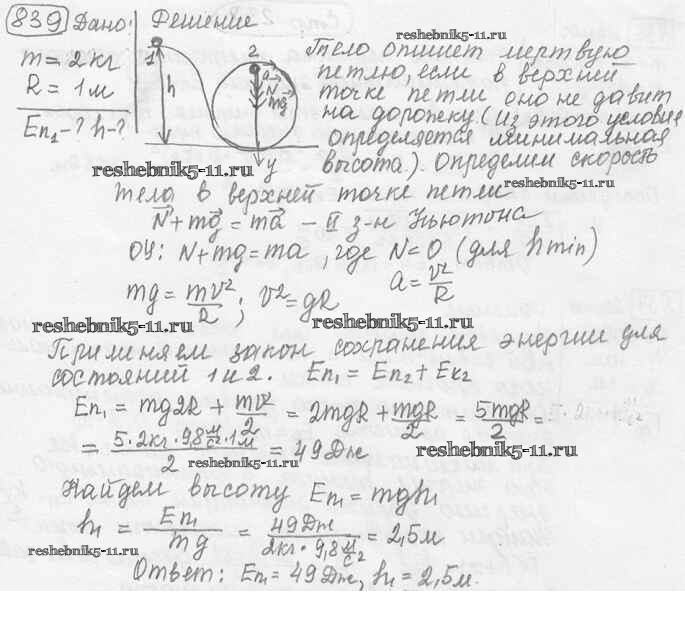 839 Дано: Решение
reshebnik5-11.ru
m = 2 кг
R = 1 м
Eп₁ - ? h - ?
1 h 2 a N mg y
Тело опишет мертвую
петлю, если в верхней
точке петли оно не давит
на дорожку. (Из этого условия
определяется минимальная
высота.). Определим скорость
reshebnik5-11.ru
reshebnik5-11.ru
тела в верхней точке петли
N⃗ + mg⃗ = ma⃗ – II з-н Ньютона
OY: N + mg = ma, где N = 0 (для h min)
mg = mv²/R ; v² = gR a = v²/R
reshebnik5-11.ru
reshebnik5-11.ru
Применяем закон сохранения энергии для
состояний 1 и 2. Eп₁ = Eп₂ + Eк₂
Eп₁ = mg2R + mv²/2 = 2mgR + mgR/2 = 5mgR/2 =
= 5·2кг·9,8 м/с²·1м / 2 = 49 Дж
reshebnik5-11.ru
reshebnik5-11.ru
Найдем высоту Eп₁ = mgh₁
h₁ = Eп₁/mg = 49 Дж / 2кг·9,8 м/с² = 2,5 м
reshebnik5-11.ru
Ответ: Eп₁ = 49 Дж, h₁ = 2,5 м.